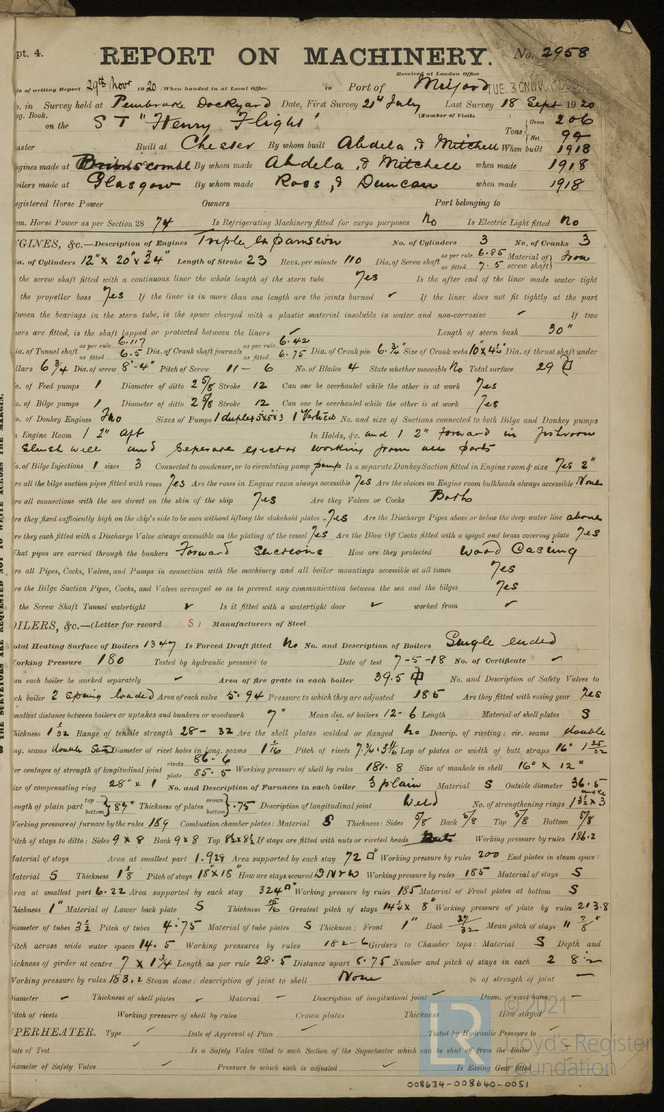 pt. 4.
REPORT ON MACHINERY. No. 2958
Received at London Office
TUE. 30 NOV. 1920
of writing Report 29th Novr 1920 When handed in at Local Office to Port of Milford
in Survey held at Pembroke Dockyard Date, First Survey 21st July Last Survey 18 Sept 1920
Book. (Number of Visits
on the S T "Henry Flight" Tons Gross 206 Net 94
Built at Chester By whom built Abdela & Mitchell When built 1918
gines made at Brimscombe By whom made Abdela & Mitchell when made 1918
oilers made at Glasgow By whom made Ross & Duncan when made 1918
egistered Horse Power Owners Port belonging to
om. Horse Power as per Section 28 74 Is Refrigerating Machinery fitted for cargo purposes No Is Electric Light fitted No
GINES, &c.—Description of Engines Triple Expansion No. of Cylinders 3 No. of Cranks 3
ia. of Cylinders 12" x 20" x 34" Length of Stroke 23 Revs. per minute 110 Dia. of Screw shaft as per rule 6.85 as fitted 7.5 Material of screw shaft Iron
the screw shaft fitted with a continuous liner the whole length of the stern tube Yes Is the after end of the liner made water tight
the propeller boss Yes If the liner is in more than one length are the joints burned ✓ If the liner does not fit tightly at the part
tween the bearings in the stern tube, is the space charged with a plastic material insoluble in water and non-corrosive ✓ If two
ers are fitted, is the shaft lapped or protected between the liners ✓ Length of stern bush 30"
ia. of Tunnel shaft as per rule 6.117 as fitted 6.5 Dia. of Crank shaft journals as per rule 6.42 as fitted 6.75 Dia. of Crank pin 6.¾" Size of Crank webs 10" x 4½" Dia. of thrust shaft under
llars 6¾ Dia. of screw 8'-4" Pitch of Screw 11-6 No. of Blades 4 State whether moveable No Total surface 29
o. of Feed pumps 1 Diameter of ditto 2⅝ Stroke 12 Can one be overhauled while the other is at work Yes
o. of Bilge pumps 1 Diameter of ditto 2⅝ Stroke 12 Can one be overhauled while the other is at work Yes
o. of Donkey Engines Two Sizes of Pumps 1 duplex 1 Vertical No. and size of Suctions connected to both Bilge and Donkey pumps
Engine Room 1 2" aft In Holds, &c. and 1 2" forward in fishroom
slush well and separate ejector working from all parts
o. of Bilge Injections 1 sizes 3 Connected to condenser, or to circulating pump pump Is a separate Donkey Suction fitted in Engine room & size Yes 2"
re all the bilge suction pipes fitted with roses Yes Are the roses in Engine room always accessible Yes Are the sluices on Engine room bulkheads always accessible None
re all connections with the sea direct on the skin of the ship Yes Are they Valves or Cocks Both
re they fixed sufficiently high on the ship's side to be seen without lifting the stokehold plates Yes Are the Discharge Pipes above or below the deep water line above
re they each fitted with a Discharge Valve always accessible on the plating of the vessel Yes Are the Blow Off Cocks fitted with a spigot and brass covering plate Yes
hat pipes are carried through the bunkers Forward Suctions How are they protected Wood Casing
re all Pipes, Cocks, Valves, and Pumps in connection with the machinery and all boiler mountings accessible at all times Yes
re the Bilge Suction Pipes, Cocks, and Valves arranged so as to prevent any communication between the sea and the bilges Yes
the Screw Shaft Tunnel watertight ✓ Is it fitted with a watertight door ✓ worked from ✓
OILERS, &c.—(Letter for record S) Manufacturers of Steel
otal Heating Surface of Boilers 1347 Is Forced Draft fitted No No. and Description of Boilers Single ended
orking Pressure 180 Tested by hydraulic pressure to Date of test 7-5-18 No. of Certificate ✓
an each boiler be worked separately ✓ Area of fire grate in each boiler 39.5 No. and Description of Safety Valves to
ch boiler 2 Spring loaded Area of each valve 5.94 Pressure to which they are adjusted 185 Are they fitted with easing gear Yes
mallest distance between boilers or uptakes and bunkers or woodwork 7" Mean dia. of boilers 12-6 Length Material of shell plates S
hickness 1 1/32 Range of tensile strength 28-32 Are the shell plates welded or flanged No Descrip. of riveting: cir. seams double
ng. seams double Diameter of rivet holes in long. seams 1 1/16 Pitch of rivets Lap of plates or width of butt straps 16" 1 25/32
er centages of strength of longitudinal joint rivets 86-6 plate 85.5 Working pressure of shell by rules 181.8 Size of manhole in shell 16" x 12"
ize of compensating ring 28" x 1 No. and Description of Furnaces in each boiler 3 plain Material S Outside diameter 36.5
ength of plain part top bottom 84" Thickness of plates crown bottom .75 Description of longitudinal joint Weld No. of strengthening rings 1 3½ x 3
Working pressure of furnace by the rules 189 Combustion chamber plates: Material S Thickness: Sides ⅝ Back ⅝ Top ⅝ Bottom ⅝
Pitch of stays to ditto: Sides 9 x 8 Back 9 x 8 Top 8½ x 8½ If stays are fitted with nuts or riveted heads Nuts Working pressure by rules 186.2
aterial of stays Area at smallest part 1.929 Area supported by each stay 72 Working pressure by rules 200 End plates in steam space:
aterial S Thickness 1⅛ Pitch of stays 18" x 18" How are stays secured D N & W Working pressure by rules 185 Material of stays S
rea at smallest part 6.22 Area supported by each stay 324 Working pressure by rules 185 Material of Front plates at bottom S
hickness 1" Material of Lower back plate S Thickness 15/16 Greatest pitch of stays 14¼ x 8" Working pressure of plate by rules 213.8
iameter of tubes 3½ Pitch of tubes 4.75 Material of tube plates S Thickness: Front 1" Back 27/32 Mean pitch of stays 11⅞"
itch across wide water spaces 14.5 Working pressures by rules 182-6 Girders to Chamber tops: Material S Depth and
ickness of girder at centre 7 x 1¾ Length as per rule 28.5 Distance apart 8.75 Number and pitch of stays in each 2 8½
Working pressure by rules 183.2 Steam dome: description of joint to shell None % of strength of joint —
iameter Thickness of shell plates ✓ Material — Description of longitudinal joint Diam. of rivet holes —
itch of rivets Working pressure of shell by rules Crown plates Thickness How stayed
PERHEATER. Type Date of Approval of Plan Tested by Hydraulic Pressure to
ate of Test Is a Safety Valve fitted to each Section of the Superheater which can be shut off from the Boiler
iameter of Safety Valve Pressure to which each is adjusted ✓ Is Easing Gear fitted
© 2021
Lloyd's Register
Foundation
LR
008634-008640-0051
THE SURVEYORS ARE REQUESTED NOT TO WRITE ACROSS THE MARGIN.